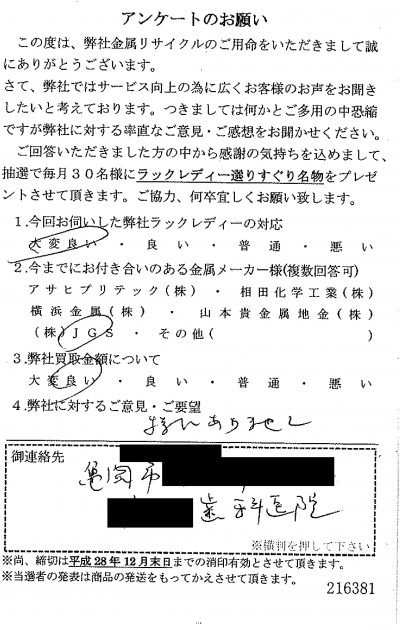 アンケートのお願い
この度は、弊社金属リサイクルのご用命をいただきまして誠
にありがとうございます。
さて、弊社ではサービス向上の為に広くお客様のお声をお聞き
したいと考えております。つきましては何かとご多用の中恐縮
ですが弊社に対する率直なご意見・ご感想をお聞かせください。
ご回答いただきました方の中から感謝の気持ちを込めまして、
抽選で毎月30名様にラックレディー選りすぐり名物をプレゼ
ントさせて頂きます。ご協力、何卒宜しくお願い致します。
1.今回お伺いした弊社ラックレディーの対応
大変良い ・ 良い ・ 普通 ・ 悪い
2.今までにお付き合いのある金属メーカー様(複数回答可)
アサヒプリテック(株) ・ 相田化学工業(株)
横浜金属(株) ・ 山本貴金属地金(株)
(株)JGS ・ その他( )
3.弊社買取金額について
大変良い ・ 良い ・ 普通 ・ 悪い
4.弊社に対するご意見・ご要望
特にありませし
御連絡先
亀岡市
歯科医院
※横判を押して下さい
※尚、締切は平成28年12月末日までの消印有効とさせて頂きます。
※当選者の発表は商品の発送をもってかえさせて頂きます。
216381